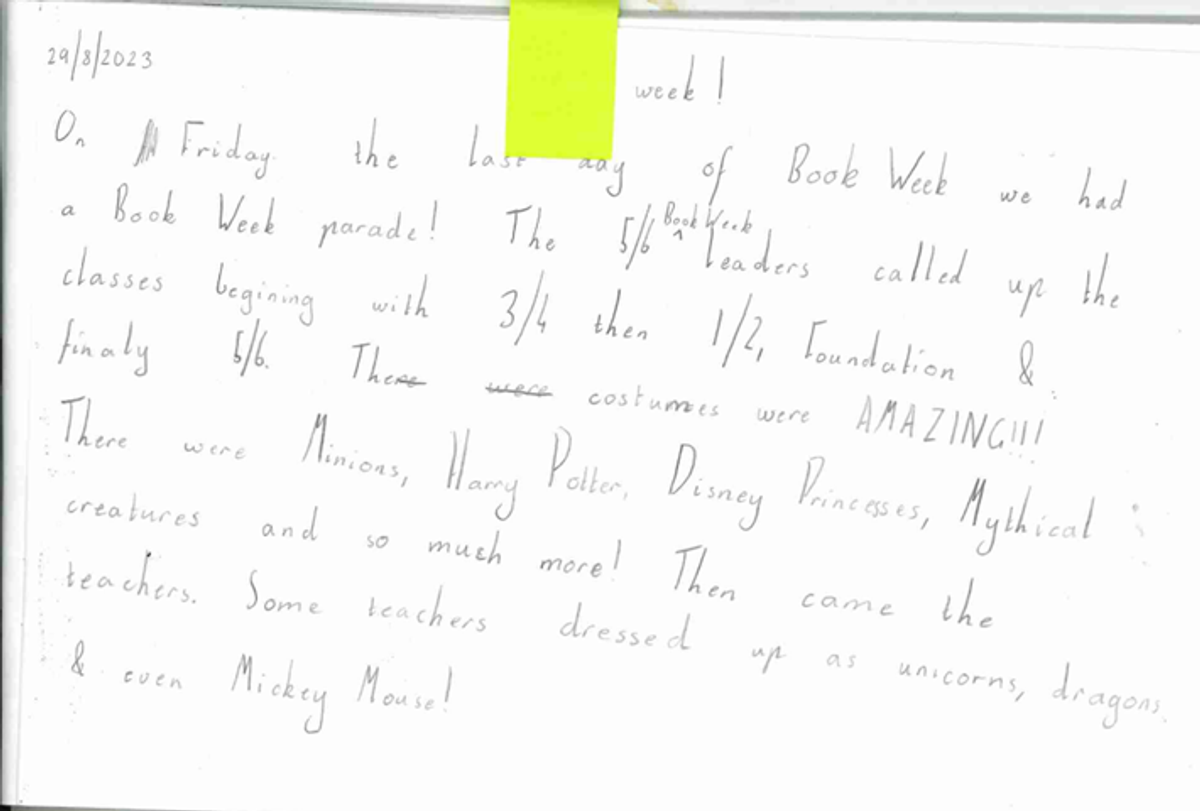 29/8/2023
week!
On Friday the last day of Book Week we had
a Book Week parade! The 5/6 ^ Book Week leaders called up the
classes begining with 3/4 then 1/2, Foundation &
finaly 5/6. There were costumes were AMAZING!!!
There were Minions, Harry Potter, Disney Princesses, Mythical
creatures and so much more! Then came the
teachers. Some teachers dressed up as unicorns, dragons.
& even Mickey Mouse!